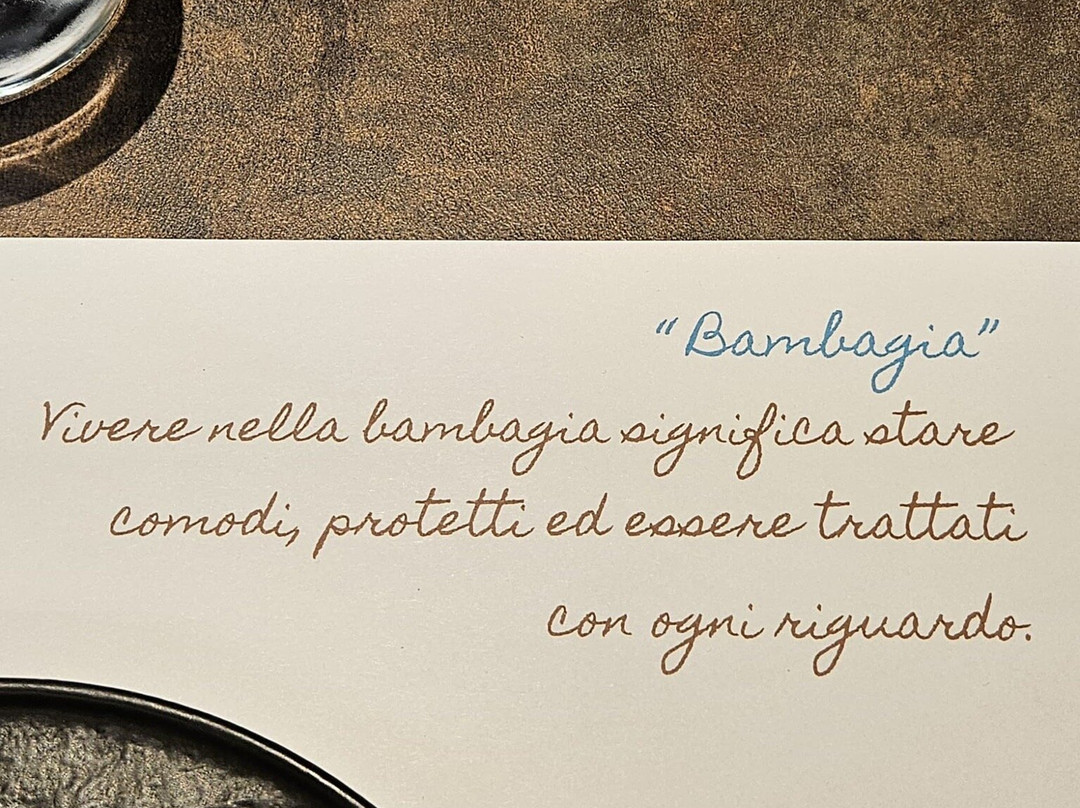 “Bambagia”
Vivere nella bambagia significa stare
comodi, protetti ed essere trattati
con ogni riguardo.